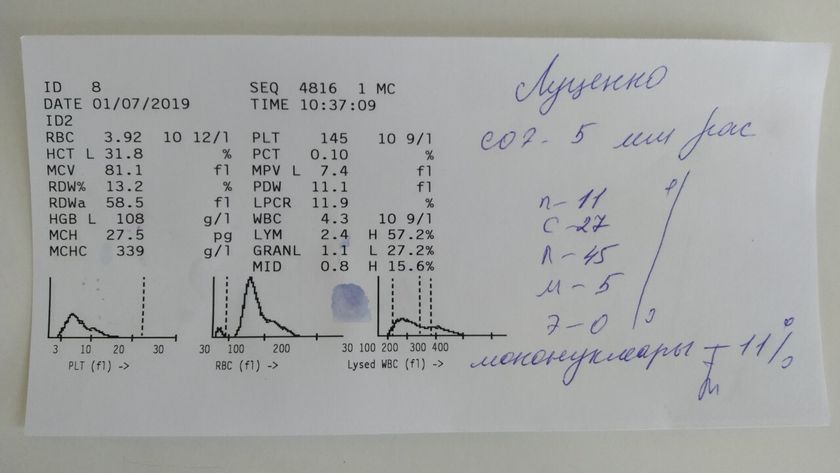 ID 8 SEQ 4816 1 MC
DATE 01/07/2019 TIME 10:37:09
ID2
RBC 3.92 10 12/l PLT 145 10 9/l
HCT L 31.8 % PCT 0.10 %
MCV 81.1 fl MPV L 7.4 fl
RDW% 13.2 % PDW 11.1 fl
RDWa 58.5 fl LPCR 11.9 %
HGB L 108 g/l WBC 4.3 10 9/l
MCH 27.5 pg LYM 2.4 H 57.2%
MCHC 339 g/l GRANL 1.1 L 27.2%
MID 0.8 H 15.6%
3 10 20 30
PLT (fl) ->
30 100 200
RBC (fl) ->
30 100 200 300 400
Lysed WBC (fl) ->
Луценко
соэ - 5 мм
п - 11
с - 27
л - 45
м - 5
э - 0
мононуклеары - 11%